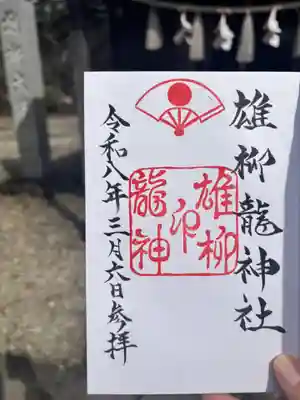 雄柳龍神社
雄柳
印
龍神
令和八年三月六日参拝